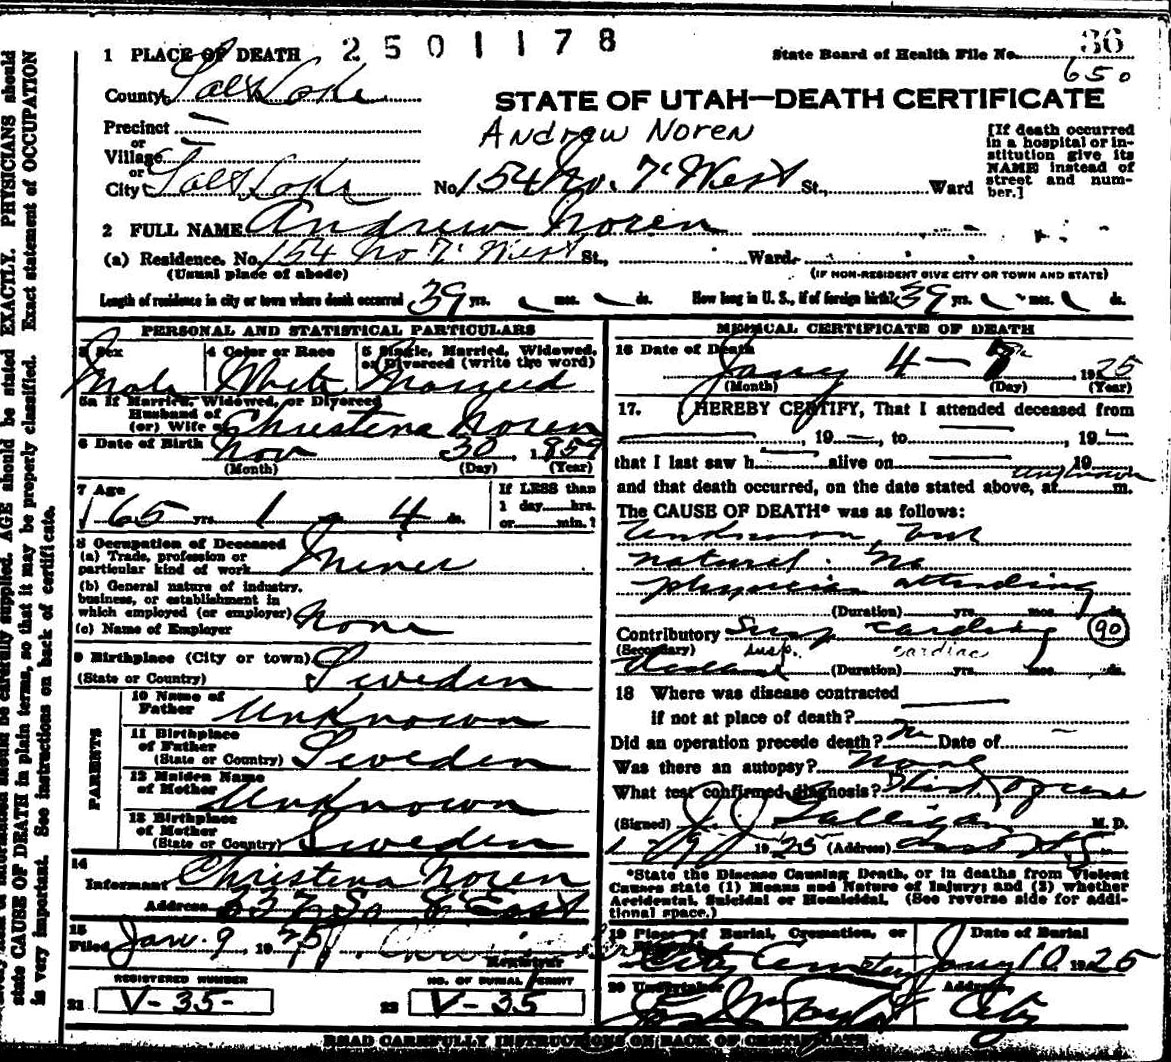 1 PLACE OF DEATH 2501178 State Board of Health File No. 36
650
County Salt Lake
STATE OF UTAH—DEATH CERTIFICATE
Precinct —
Andrew Noren
or
Village —
or
City Salt Lake No. 154 No. 7' West St., Ward
[If death occurred
in a hospital or in-
stitution give its
NAME instead of
street and num-
ber.]
2 FULL NAME Andrew Noren
(a) Residence. No. 154 No 7' West St., Ward.
(Usual place of abode) (IF NON-RESIDENT GIVE CITY OR TOWN AND STATE)
Length of residence in city or town where death occurred 39 yrs. mos. ds. How long in U. S., if of foreign birth? 39 yrs. mos. ds.
PERSONAL AND STATISTICAL PARTICULARS
3 Sex 4 Color or Race 5 Single, Married, Widowed,
or Divorced (write the word)
Male White Married
5a If Married, Widowed, or Divorced
Husband of
(or) Wife of Christena Noren
6 Date of Birth Nov 30, 1859
(Month) (Day) (Year)
7 Age If LESS than
1 day hrs.
65 yrs. 1 4 ds. or min.?
8 Occupation of Deceased
(a) Trade, profession or
particular kind of work Miner
(b) General nature of industry,
business, or establishment in
which employed (or employer) None
(c) Name of Employer
9 Birthplace (City or town)
(State or Country) Sweden
PARENTS
10 Name of
Father Unknown
11 Birthplace
of Father
(State or Country) Sweden
12 Maiden Name
of Mother Unknown
13 Birthplace
of Mother
(State or Country) Sweden
14
Informant Christena Noren
Address So 8' East
15
Filed Jan. 9 1925
Registrar
REGISTERED NUMBER NO. OF BURIAL PERMIT
21 V-35- 22 V-35
MEDICAL CERTIFICATE OF DEATH
16 Date of Death Jany 4 — 1925
(Month) (Day) (Year)
17. I HEREBY CERTIFY, That I attended deceased from
—, 19 —, to —, 19 —
that I last saw h — alive on — 19
and that death occurred, on the date stated above, at unknown m.
The CAUSE OF DEATH* was as follows:
Unknown, but
natural. No
physician attending
(Duration) yrs. mos. ds.
Contributory Susp cardiac 90
(Secondary) susp. cardiac
(Duration) yrs. mos. ds.
18 Where was disease contracted —
if not at place of death?
Did an operation precede death? No Date of —
Was there an autopsy? None
What test confirmed diagnosis? Hist of case
(Signed) J. J. Galligan M. D.
1/9 1925 (Address)
*State the Disease Causing Death, or in deaths from Violent
Causes state (1) Means and Nature of Injury; and (2) whether
Accidental, Suicidal or Homicidal. (See reverse side for addi-
tional space.)
19 Place of Burial, Cremation, or Date of Burial
Removal
City Cemetery Jany 10 1925
20 Undertaker Address
Jos Wm Taylor City
READ CAREFULLY INSTRUCTIONS ON BACK OF CERTIFICATE
supplied. AGE should be stated EXACTLY. PHYSICIANS should
state CAUSE OF DEATH in plain terms, so that it may be properly classified. Exact statement of OCCUPATION
is very important. See instructions on back of certificate.